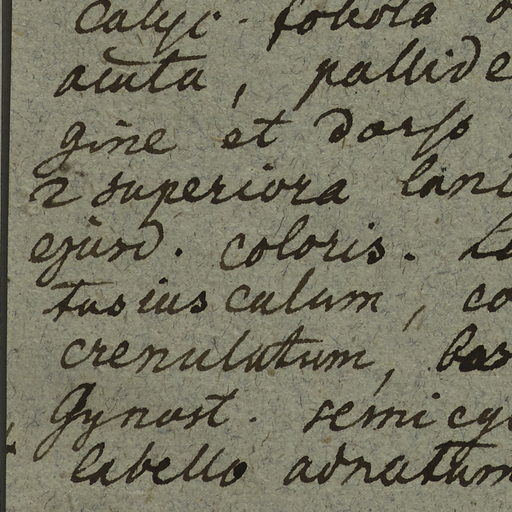 Calyc. foliola
acuta, pallide
gine et dorso
2 superiora lan
ejusd. coloris. La
tusiusculum, co
crenulatum, bas
Gynost. semicy
labello adnatum